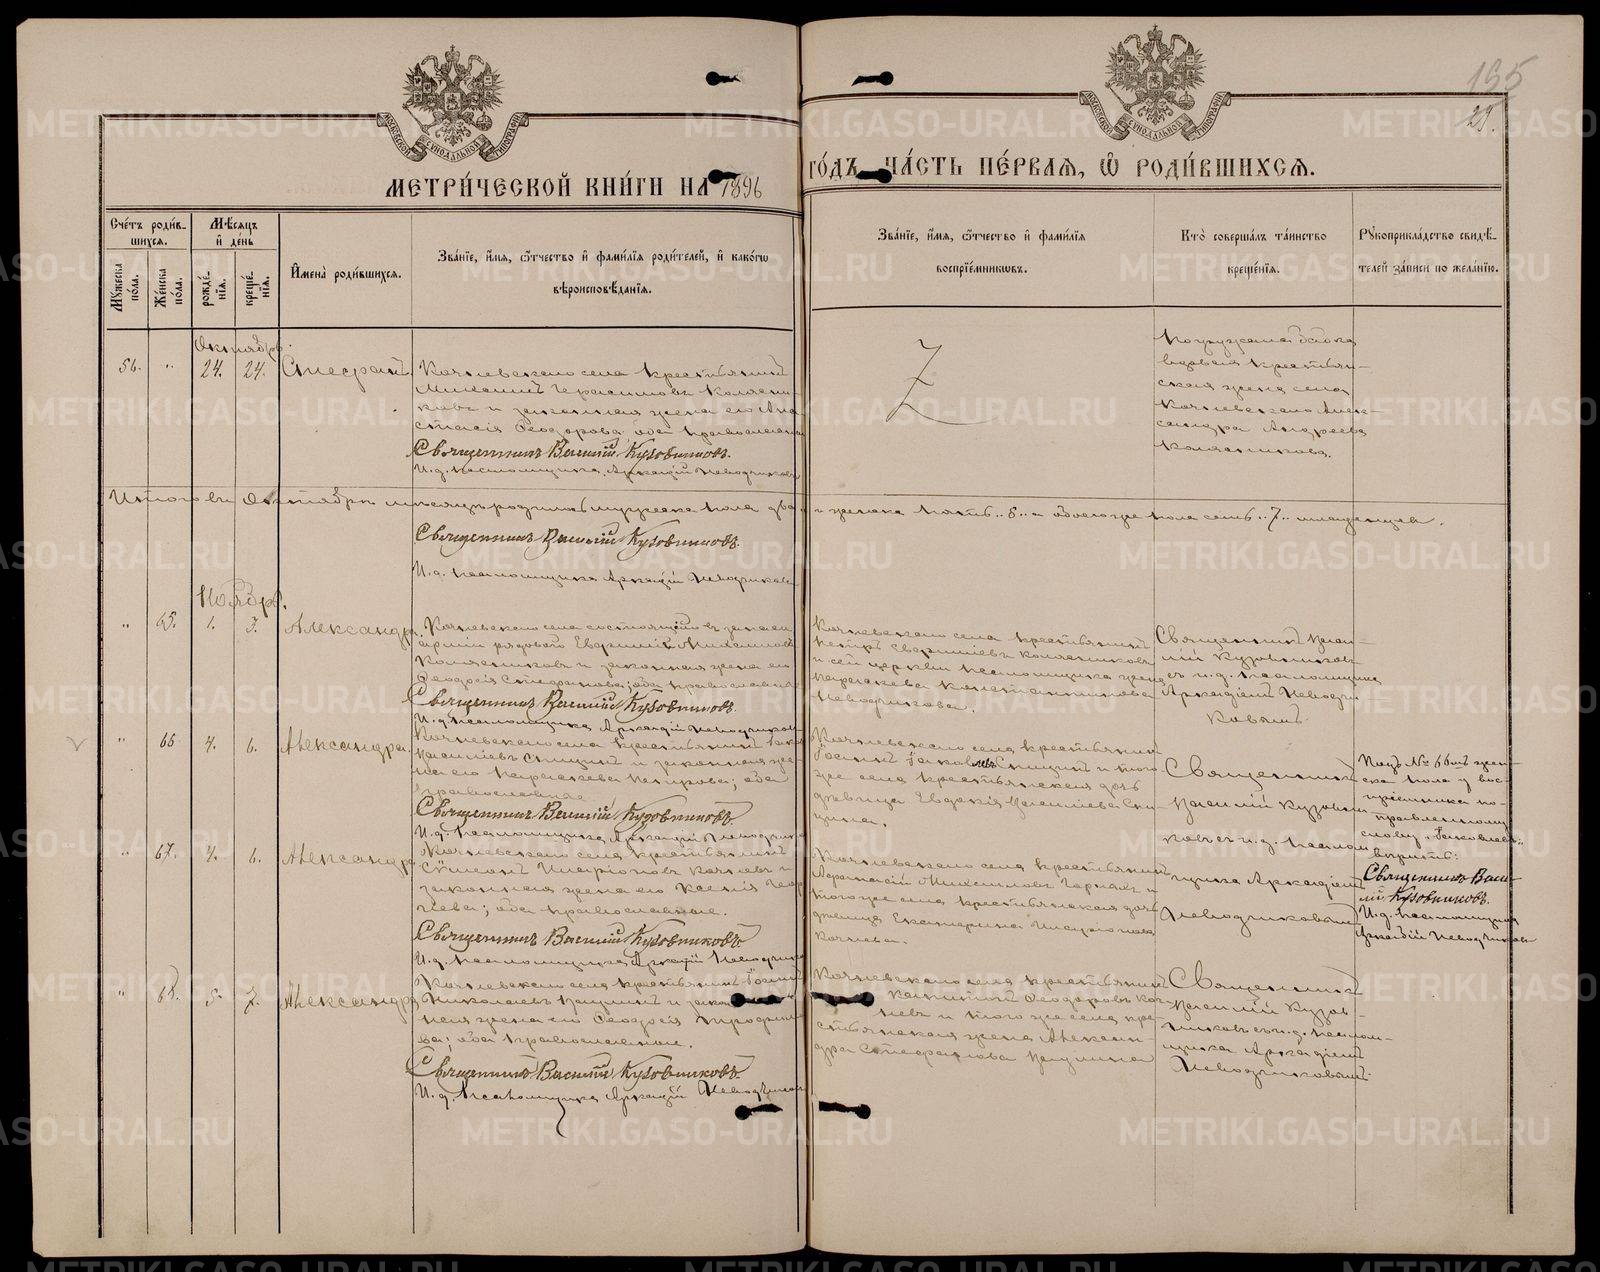 135
29.
МЕТРИ́ЧЕСКОЙ КНИ́ГИ НА 1896
ГО́ДЪ, ЧА́СТЬ ПЕ́РВАЯ, Ѡ҆ РОДИ́ВШИХСЯ.
Сче́тъ роди́в-
шихся.
Мѣ́сяцъ
и҆ де́нь
Мꙋ́жеска по́ла.
Же́нска по́ла.
рожде́нїя.
креще́нїя.
И҆мена̀ роди́вшихся.
Зва́нїе, и҆́мя, ѻ҆́тчество и҆ фами́лїя роди́телей, и҆ како́гѡ
вѣроисповѣ́данїя.
Зва́нїе, и҆́мя, ѻ҆́тчество и҆ фами́лїя
воспрїе́мниковъ.
Кто̀ соверша́лъ та́инство
креще́нїя.
Рꙋкоприкла́дство свидѣ́-
телей за́писи по жела́нїю.
Октябрь.
56. " 24. 24.
Кочневскаго села крестьянинъ
Михаилъ Герасимовъ Коляни-
ковъ и законная жена его Ана-
стасія Ѳеодорова оба православные
Священникъ Василій Кузовниковъ.
И.д. псаломщика Аркадій Неводчиковъ
вдова крестьян-
ская жена села
Кочневскаго Алек-
сандра Андреева
Итого въ Октябрѣ мѣсяцѣ родилось мужеска пола два и женска пять "5" а обоего пола семь "7" младенцевъ.
Священникъ Василій Кузовниковъ.
И.д. псаломщика Аркадій Неводчиковъ
Ноябрь.
" 65. 1. 3. Александра.
Кочневскаго села состоящаго въ запасѣ
арміи рядоваго
и законная жена его
Ѳеодосія Стефанова; оба православные
Священникъ Василій Кузовниковъ.
И.д. псаломщика Аркадій Неводчиковъ
Кочневскаго села крестьянинъ
Петръ
и сей церкви псаломщика жена
Параскева Константинова
Неводчикова.
Священникъ Васи-
лій Кузовниковъ
съ и.д. псаломщика
Аркадіемъ Неводчи-
ковымъ.
" 66 4. 6. Александра.
Кочневскаго села крестьянинъ Іаковъ
Василіевъ Спицинъ и законная же-
на его Параскева Петрова; оба
православные
Священникъ Василій Кузовниковъ
И.д. псаломщика Аркадій Неводчиковъ
Кочневскаго села крестьянинъ
Іаковлевъ Спицинъ и того
же села крестьянская дочь
дѣвица Евдокія Василіева Спи-
цина.
Священникъ
Василій Кузовни-
ковъ съ и.д. псалом-
щика Аркадіемъ
Неводчиковымъ
Подъ № 66мъ жен-
ска пола у вос-
пріемника по-
правленному
слову "Іаковлевъ"
вѣрить:
Священникъ Васи-
лій Кузовниковъ.
И.д. псаломщика
Аркадій Неводчиковъ
" 67. 4. 6. Александра
Кочневскаго села крестьянинъ
Сѵмеонъ Иларіоновъ Кочневъ и
законная жена его Ксенія Геор-
гіева; оба православные.
Священникъ Василій Кузовниковъ
И.д. псаломщика Аркадій Неводчиковъ
Кочневскаго села крестьянинъ
Аѳанасій Михаиловъ
того же села крестьянская дочь
дѣвица Екатерина Иларіонова
Кочнева.
" 68. 5. 7. Александра
Кочневскаго села крестьянинъ
Николаевъ и закон-
ная жена его Ѳеодосія Трофимо-
ва; оба православные.
Священникъ Василій Кузовниковъ.
И.д. псаломщика Аркадій Неводчиковъ
Кочневскаго села крестьянинъ
Ѳеодоровъ Коч-
невъ и того же села кре-
стьянская жена Алексан-
дра Стефанова
Священникъ
Василій Кузов-
никовъ съ и.д. псалом-
щика Аркадіемъ
Неводчиковымъ.
METRIKI.GASO-URAL.RU